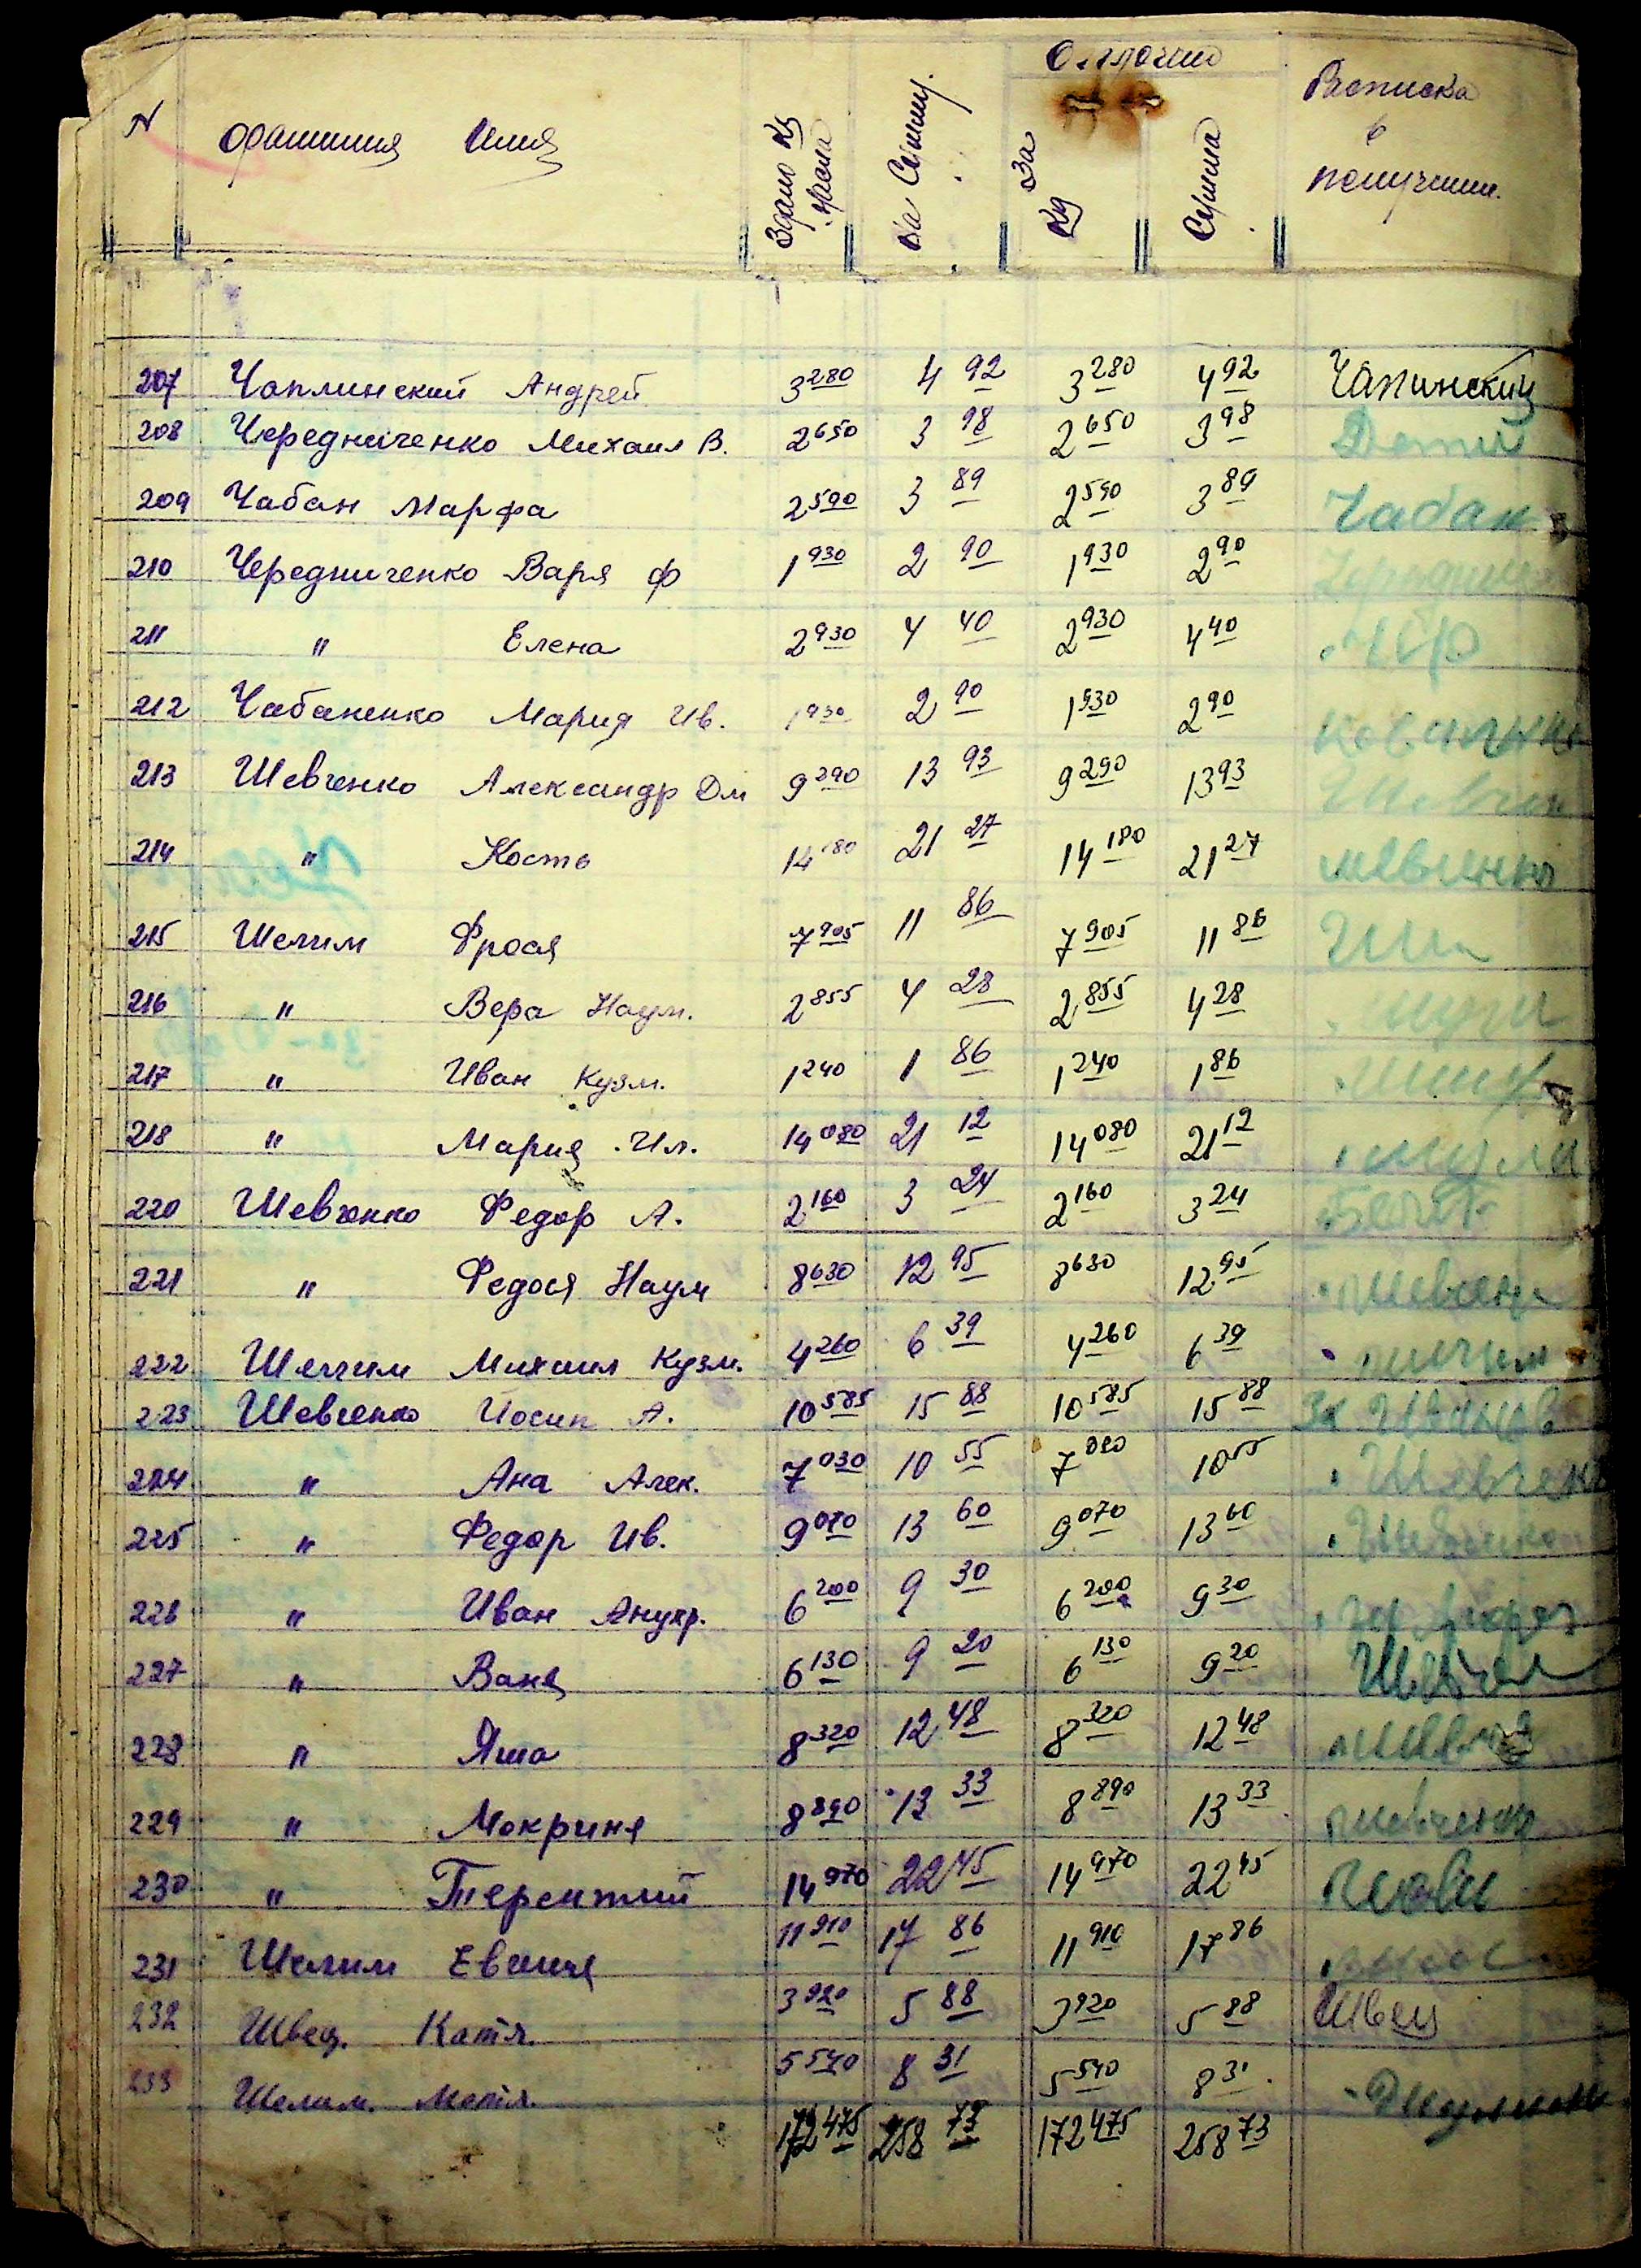 N Фамилия Имя Здано кг масла На Сумму Оплочено За кг Сумма Расписка в получении.
207 Чаплинский Андрей 3280 4 92 3280 4 92 Чапинский
208 Чередниченко Михаил В. 2650 3 98 2650 3 98
209 Чабан Марфа 2590 3 89 2590 3 89 Чабан
210 Чередниченко Варя Ф 1930 2 90 1930 2 90
211 " Елена 2930 4 40 2930 4 40 Чер
212 Чабаненко Мария Ив. 1930 2 90 1930 2 90
213 Шевченко Александр Дм 9290 13 93 9290 13 93
214 " Кость 14180 21 27 14180 21 27 Шевченко
215 Шелим Фрося 7905 11 86 7905 11 86
216 " Вера Наум. 2855 4 28 2855 4 28
217 " Иван Кузм. 1240 1 86 1240 1 86
218 " Мария Ил. 14080 21 12 14080 21 12
220 Шевченко Федор А. 2160 3 24 2160 3 24
221 " Федося Наум 8630 12 95 8630 12 95
222 Шелим Михаил Кузм. 4260 6 39 4260 6 39
223 Шевченко Йосип А. 10585 15 88 10585 15 88 За
224 " Ана Алек. 7030 10 55 7030 10 55 Шевченко
225 " Федор Ив. 9070 13 60 9070 13 60
226 " Иван 6200 9 30 6200 9 30
227 " Ваня 6130 9 20 6130 9 20
228 " Яша 8320 12 48 8320 12 48
229 " Мокриня 8890 13 33 8890 13 33 Шевченко
230 " Терентий 14970 22 45 14970 22 45
231 Шелим Евгиня 11910 17 86 11910 17 86
232 Швец. Катя. 3920 5 88 3920 5 88 Швец
233 Шелим. Мотя. 5540 8 31 5540 8 31.
172475 258 73 172475 258 73